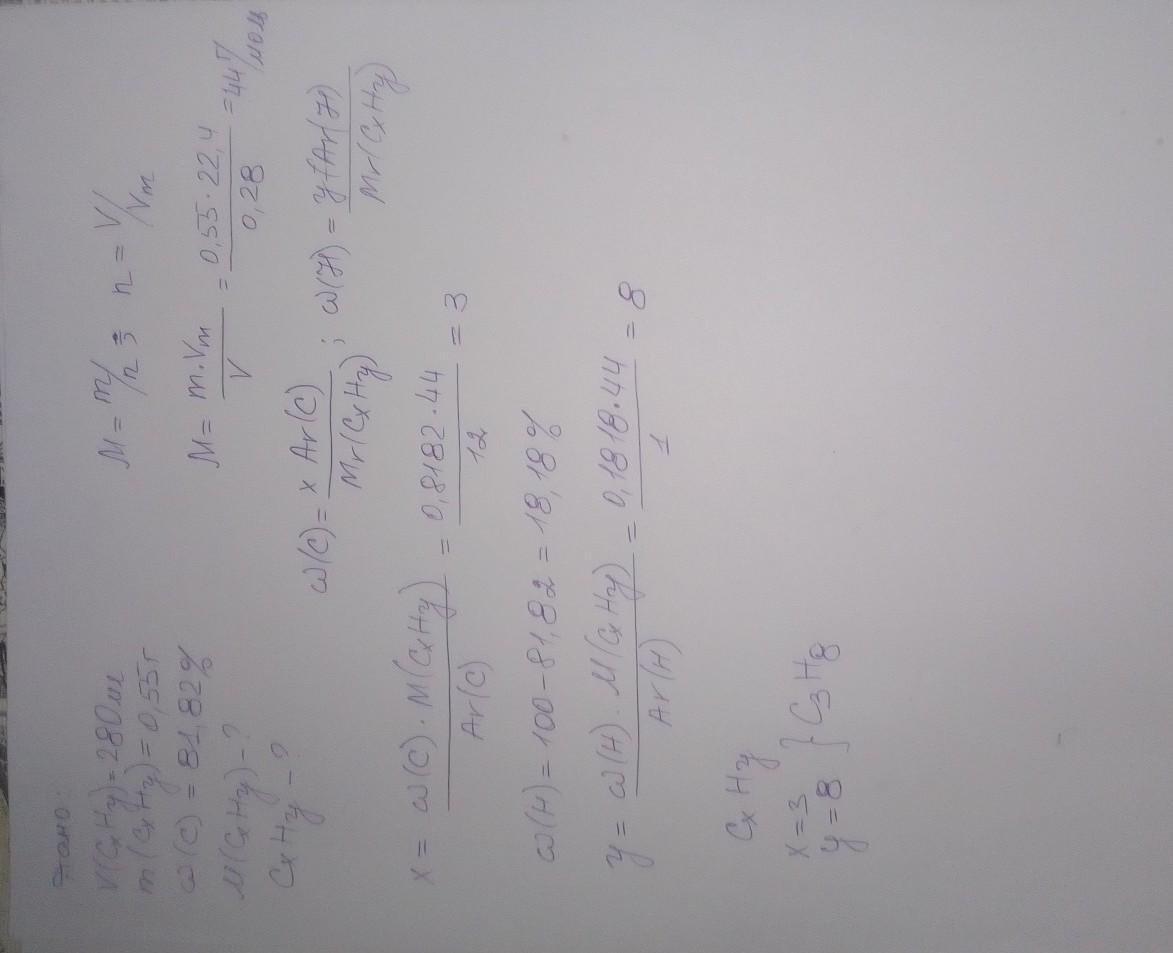 Дано:
V(CxHy)=280мл
m(CxHy)=0,55г
ω(C) = 81,82%
M(CxHy)-?
CxHy-?
M = m/n ; n = V/Vm
M = m·Vm/V = 0,55·22,4/0,28 = 44 г/моль
ω(C) = x Ar(C)/Mr(CxHy) ; ω(H) = y Ar(H)/Mr(CxHy)
x = ω(C)·M(CxHy)/Ar(C) = 0,8182·44/12 = 3
ω(H) = 100-81,82 = 18,18%
y = ω(H)·M(CxHy)/Ar(H) = 0,1818·44/1 = 8
CxHy
x=3
y=8 } C3H8